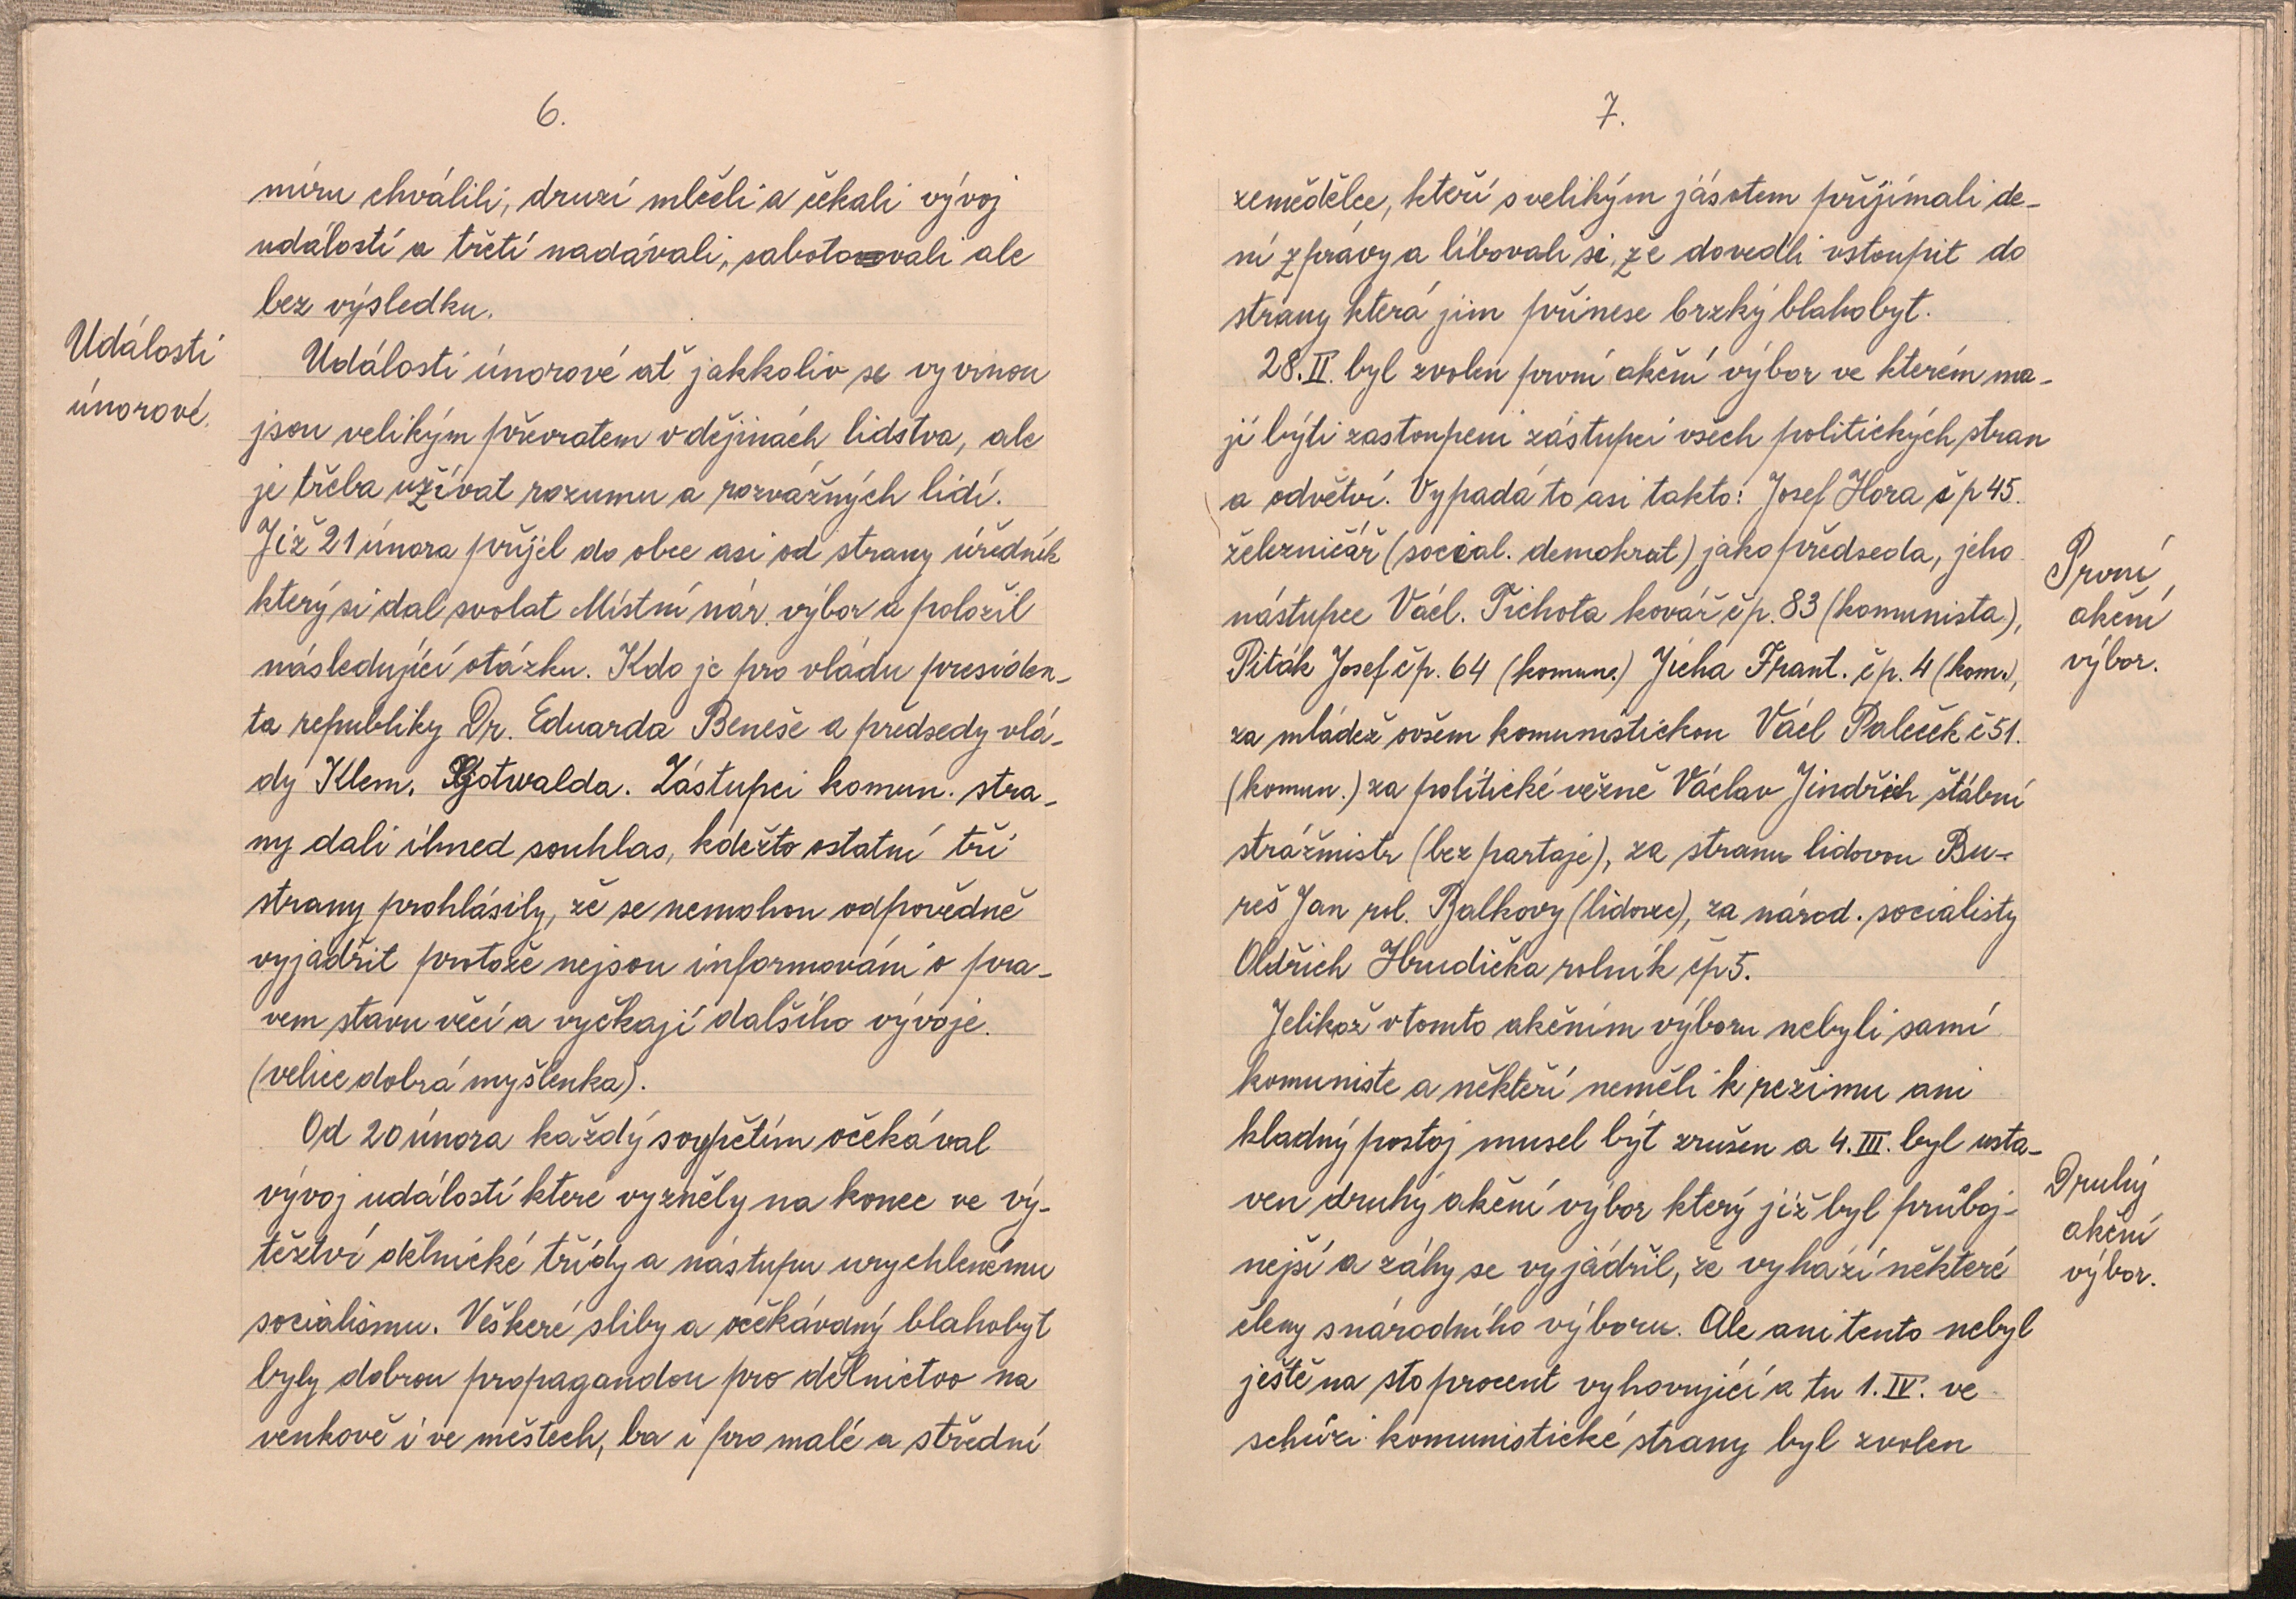 6.
míru chválili, druzí mlčeli a čekali vývoj
událostí a třetí nadávali, sabotovali ale
bez výsledku.
Události
únorové.
Události únorové ať jakkoliv se vyvinou
jsou velikým převratem v dějinách lidstva, ale
je třeba užívat rozumu a rozvážných lidí.
Již 21 února přijel do obce asi od strany úředník
který si dal svolat Místní nár. výbor a položil
následující otázku. Kdo je pro vládu presiden-
ta republiky Dr. Eduarda Beneše a předsedy vlá-
dy Klem. Gotwalda. Zástupci komun. stra-
ny dali ihned souhlas, kdežto ostatní tři
strany prohlásily, že se nemohou odpovědně
vyjádřit protože nejsou informováni o pra-
vem stavu věcí a vyčkají dalšího vývoje.
(velice dobrá myšlenka).
Od 20 února každý s vypětím očekával
vývoj událostí které vyzněly na konec ve vý-
těztví dělnické třídy a nástupu urychlenému
socialismu. Veškeré sliby a očekávaný blahobyt
byly dobrou propagandou pro dělnictvo na
venkově i ve městech, ba i pro malé a střední
7.
zemědělce, kteří s velikým jásotem přijímali de-
ní zprávy a libovali si, že dovedli vstoupit do
strany která jim přinese brzký blahobyt.
28. II. byl zvolen první akční výbor ve kterém ma-
jí býti zastoupeni zástupci všech politických stran
a odvětví. Vypadá to asi takto: Josef Hora čp 45.
železničář (social. demokrat) jako předseda, jeho
nástupce Václ. Tichota kovář čp. 83 (komunista),
Piták Josef čp. 64 (komun.) Jícha Frant. čp. 4 (kom.),
za mládež ovšem komunistickou Václ Paleček č 51.
(komun.) za politické vězně Václav Jindřich štábní
strážmistr (bez partaje), za stranu lidovou Bu-
reš Jan rol. Balkovy (lidovec), za národ. socialisty
Oldřich Hrudička rolník čp 5.
První
akční
výbor.
Jelikož v tomto akčním výboru nebyli samí
komuniste a někteří neměli k režimu ani
kladný postoj musel být zrušen a 4. III. byl usta-
ven druhý akční výbor který již byl průboj-
nejší a záhy se vyjádřil, že vyhází některé
členy s národního výboru. Ale ani tento nebyl
ještě na sto procent vyhovující a tu 1. IV. ve
schůzi komunistické strany byl zvolen
Druhý
akční
výbor.